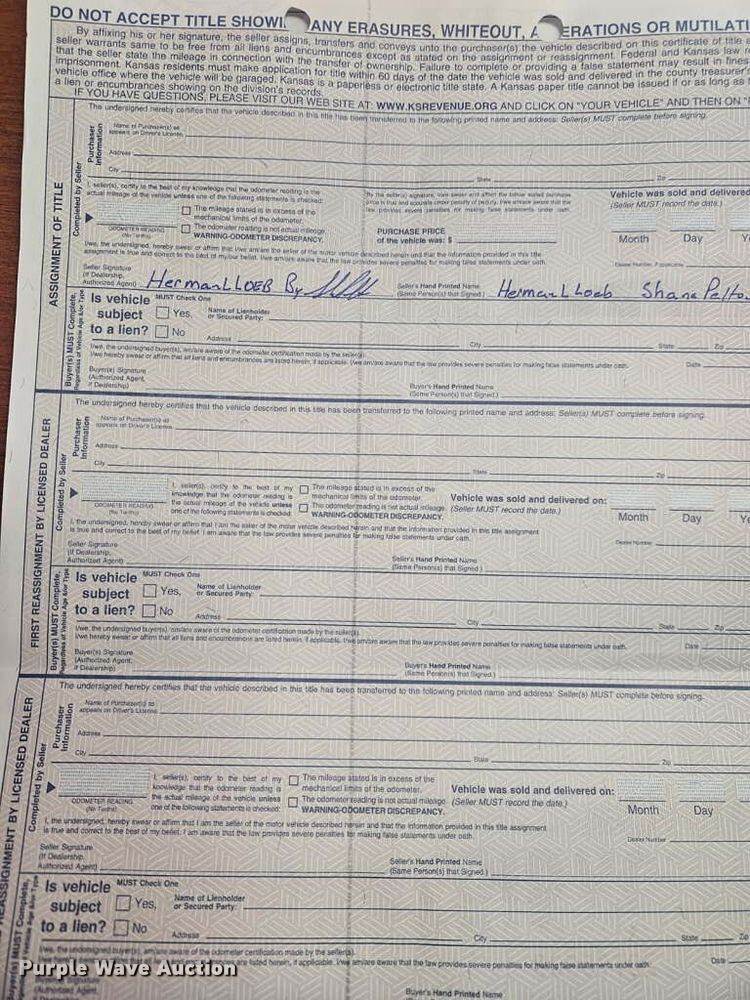 DO NOT ACCEPT TITLE ANY ERASURES, WHITEOUT, OR MUTILATI
By affixing his or her signature, the seller assigns, transfers and conveys unto the purchaser(s) the vehicle described on this certificate of title
seller warrants same to be free from all liens and encumbrances except as stated on the assignment or reassignment. Federal and Kansas law
that the seller state the mileage in connection with the transfer of ownership. Failure to complete or providing a false statement may result in fines
imprisonment. Kansas residents must make application for title within 60 days of the date the vehicle was sold and delivered in the county treasurer's
vehicle office where the vehicle will be garaged. Kansas is a paperless or electronic title state. A Kansas paper title cannot be issued if or as long as
a lien or encumbrances showing on the division's records.
IF YOU HAVE QUESTIONS, PLEASE VISIT OUR WEB SITE AT: WWW.KSREVENUE.ORG AND CLICK ON "YOUR VEHICLE" AND THEN ON
The undersigned hereby certifies that the vehicle described in this title has been transferred to the following printed name and address: Seller(s) MUST complete before signing.
ASSIGNMENT OF TITLE
Completed by Seller
Purchaser Information
Name of Purchaser(s) as
appears on Driver's License
Address
City State Zip
I, seller(s), certify to the best of my knowledge that the odometer reading is the
actual mileage of the vehicle unless one of the following statements is checked:
The mileage stated is in excess of the
mechanical limits of the odometer.
The odometer reading is not actual mileage.
WARNING-ODOMETER DISCREPANCY.
ODOMETER READING
(No Tenths)
PURCHASE PRICE
of the vehicle was: $
Vehicle was sold and delivered
(Seller MUST record the date.)
Month Day
I/we, the undersigned, hereby swear or affirm that I/we am/are the seller of the motor vehicle described herein and that the information provided in this title
assignment is true and correct to the best of my/our belief. I/we am/are aware that the law provides severe penalties for making false statements under oath.
Seller Signature
(If Dealership,
Authorized Agent) Herman L LOEB By
Seller's Hand Printed Name
(Same Person(s) that Signed.) Herman L Loeb Shane Pelto
Buyer(s) MUST Complete,
Regardless of Vehicle Age &/or Type
Is vehicle MUST Check One
subject Yes, Name of Lienholder
or Secured Party:
to a lien? No Address City State Zip
I/we, the undersigned buyer(s), am/are aware of the odometer certification made by the seller(s).
I/we hereby swear or affirm that all liens and encumbrances are listed herein, if applicable. I/we am/are aware that the law provides severe penalties for making false statements under oath. Date
Buyer(s) Signature
(Authorized Agent,
if Dealership)
Buyer's Hand Printed Name
(Same Person(s) that Signed.)
The undersigned hereby certifies that the vehicle described in this title has been transferred to the following printed name and address: Seller(s) MUST complete before signing.
FIRST REASSIGNMENT BY LICENSED DEALER
Completed by Seller
Purchaser Information
Name of Purchaser(s) as
appears on Driver's License
Address
City State Zip
I, seller(s), certify to the best of my
knowledge that the odometer reading is
the actual mileage of the vehicle unless
one of the following statements is checked:
The mileage stated is in excess of the
mechanical limits of the odometer.
The odometer reading is not actual mileage.
WARNING-ODOMETER DISCREPANCY.
ODOMETER READING
(No Tenths)
Vehicle was sold and delivered on:
(Seller MUST record the date.)
Month Day
I, the undersigned, hereby swear or affirm that I am the seller of the motor vehicle described herein and that the information provided in this title assignment
is true and correct to the best of my belief. I am aware that the law provides severe penalties for making false statements under oath.
Dealer Number
Seller Signature
(If Dealership,
Authorized Agent)
Seller's Hand Printed Name
(Same Person(s) that Signed.)
Buyer(s) MUST Complete,
Regardless of Vehicle Age &/or Type
Is vehicle MUST Check One
subject Yes, Name of Lienholder
or Secured Party:
to a lien? No Address City State Zip
I/we, the undersigned buyer(s), am/are aware of the odometer certification made by the seller(s).
I/we hereby swear or affirm that all liens and encumbrances are listed herein, if applicable. I/we am/are aware that the law provides severe penalties for making false statements under oath. Date
Buyer(s) Signature
(Authorized Agent,
if Dealership)
Buyer's Hand Printed Name
(Same Person(s) that Signed.)
The undersigned hereby certifies that the vehicle described in this title has been transferred to the following printed name and address: Seller(s) MUST complete before signing.
REASSIGNMENT BY LICENSED DEALER
Completed by Seller
Purchaser Information
Name of Purchaser(s) as
appears on Driver's License
Address
City State Zip
I, seller(s), certify to the best of my
knowledge that the odometer reading is
the actual mileage of the vehicle unless
one of the following statements is checked:
The mileage stated is in excess of the
mechanical limits of the odometer.
The odometer reading is not actual mileage
WARNING-ODOMETER DISCREPANCY.
ODOMETER READING
(No Tenths)
Vehicle was sold and delivered on:
(Seller MUST record the date.)
Month Day
I, the undersigned, hereby swear or affirm that I am the seller of the motor vehicle described herein and that the information provided in this title assignment
is true and correct to the best of my belief. I am aware that the law provides severe penalties for making false statements under oath.
Dealer Number
Seller Signature
(If Dealership,
Authorized Agent)
Seller's Hand Printed Name
(Same Person(s) that Signed.)
Is vehicle MUST Check One
subject Yes, Name of Lienholder
or Secured Party:
to a lien? No Address City State Zip
I/we, the undersigned buyer(s), am/are aware of the odometer certification made by the seller(s).
are listed herein, if applicable. I/we am/are aware that the law provides severe penalties for making false statements under oath. Date
Purple Wave Auction
Buyer(s) Signature
(Authorized Agent,
Buyer's Hand Printed Name